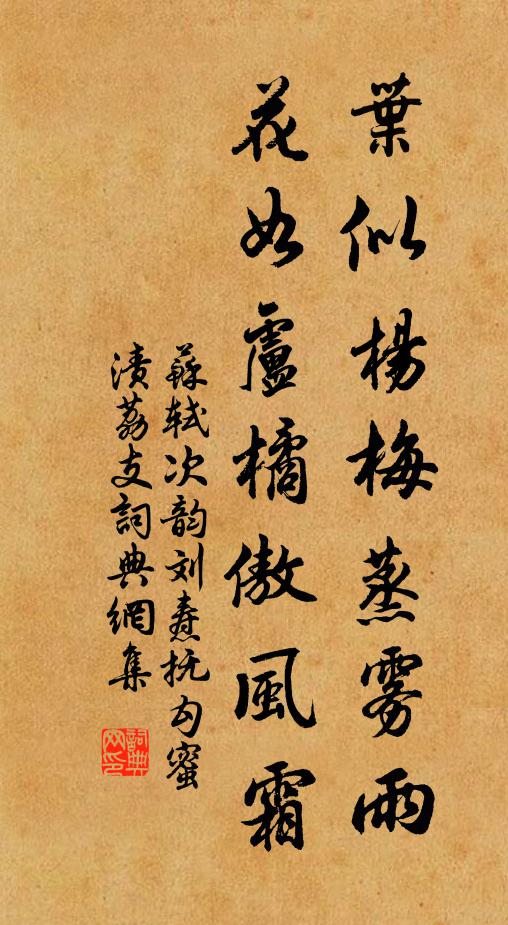 葉似楊梅蒸雾雨
花如盧橘傲風霜
蘇轼次韵刘焘抚勾蜜
渍荔支詞典網集
詞典网印